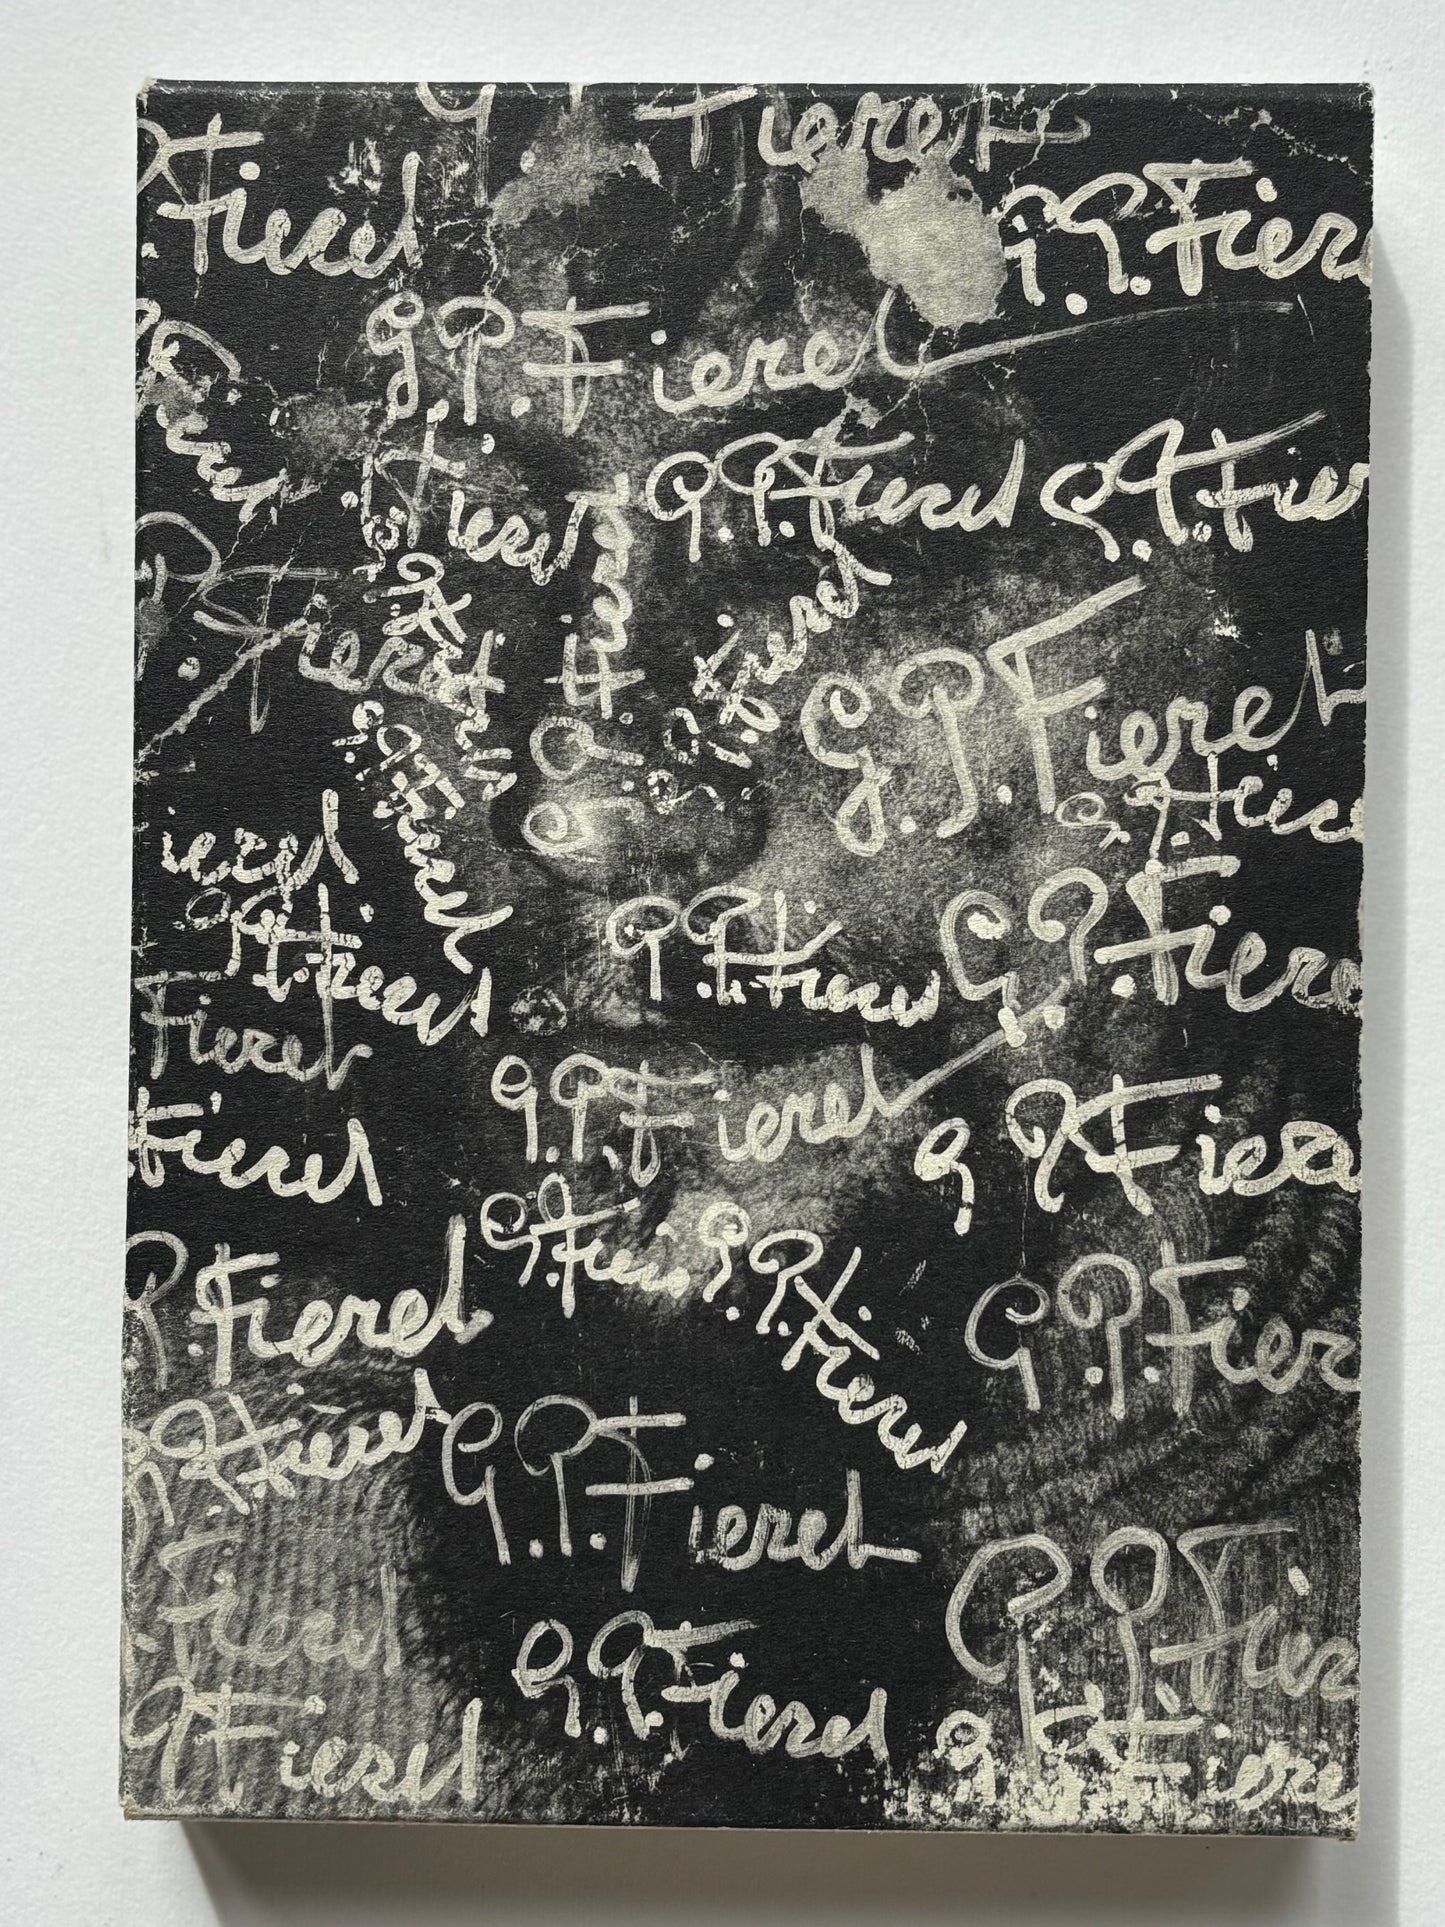 G. P. Fieret
P. Fieret
G. P. Fier
G. P. Fieret
Fieret
Fieret
G. P. Fieret
G. P. Fier
Fieret
G. P. Fieret
P. Fieret
G. P. Fieret
G. P. Fieret
G. P. Fieret
ieret
G. P. Fieret
G. P. Fieret
G. P. Fieret
Fieret
G. P. Fieret
G. P. Fiere
Fieret
G. P. Fieret
P. Fieret
G. P. Fier
G. P. Fieret
G. P. Fieret
G. P. Fieret
Fieret
G. P. Fieret
P. Fieret